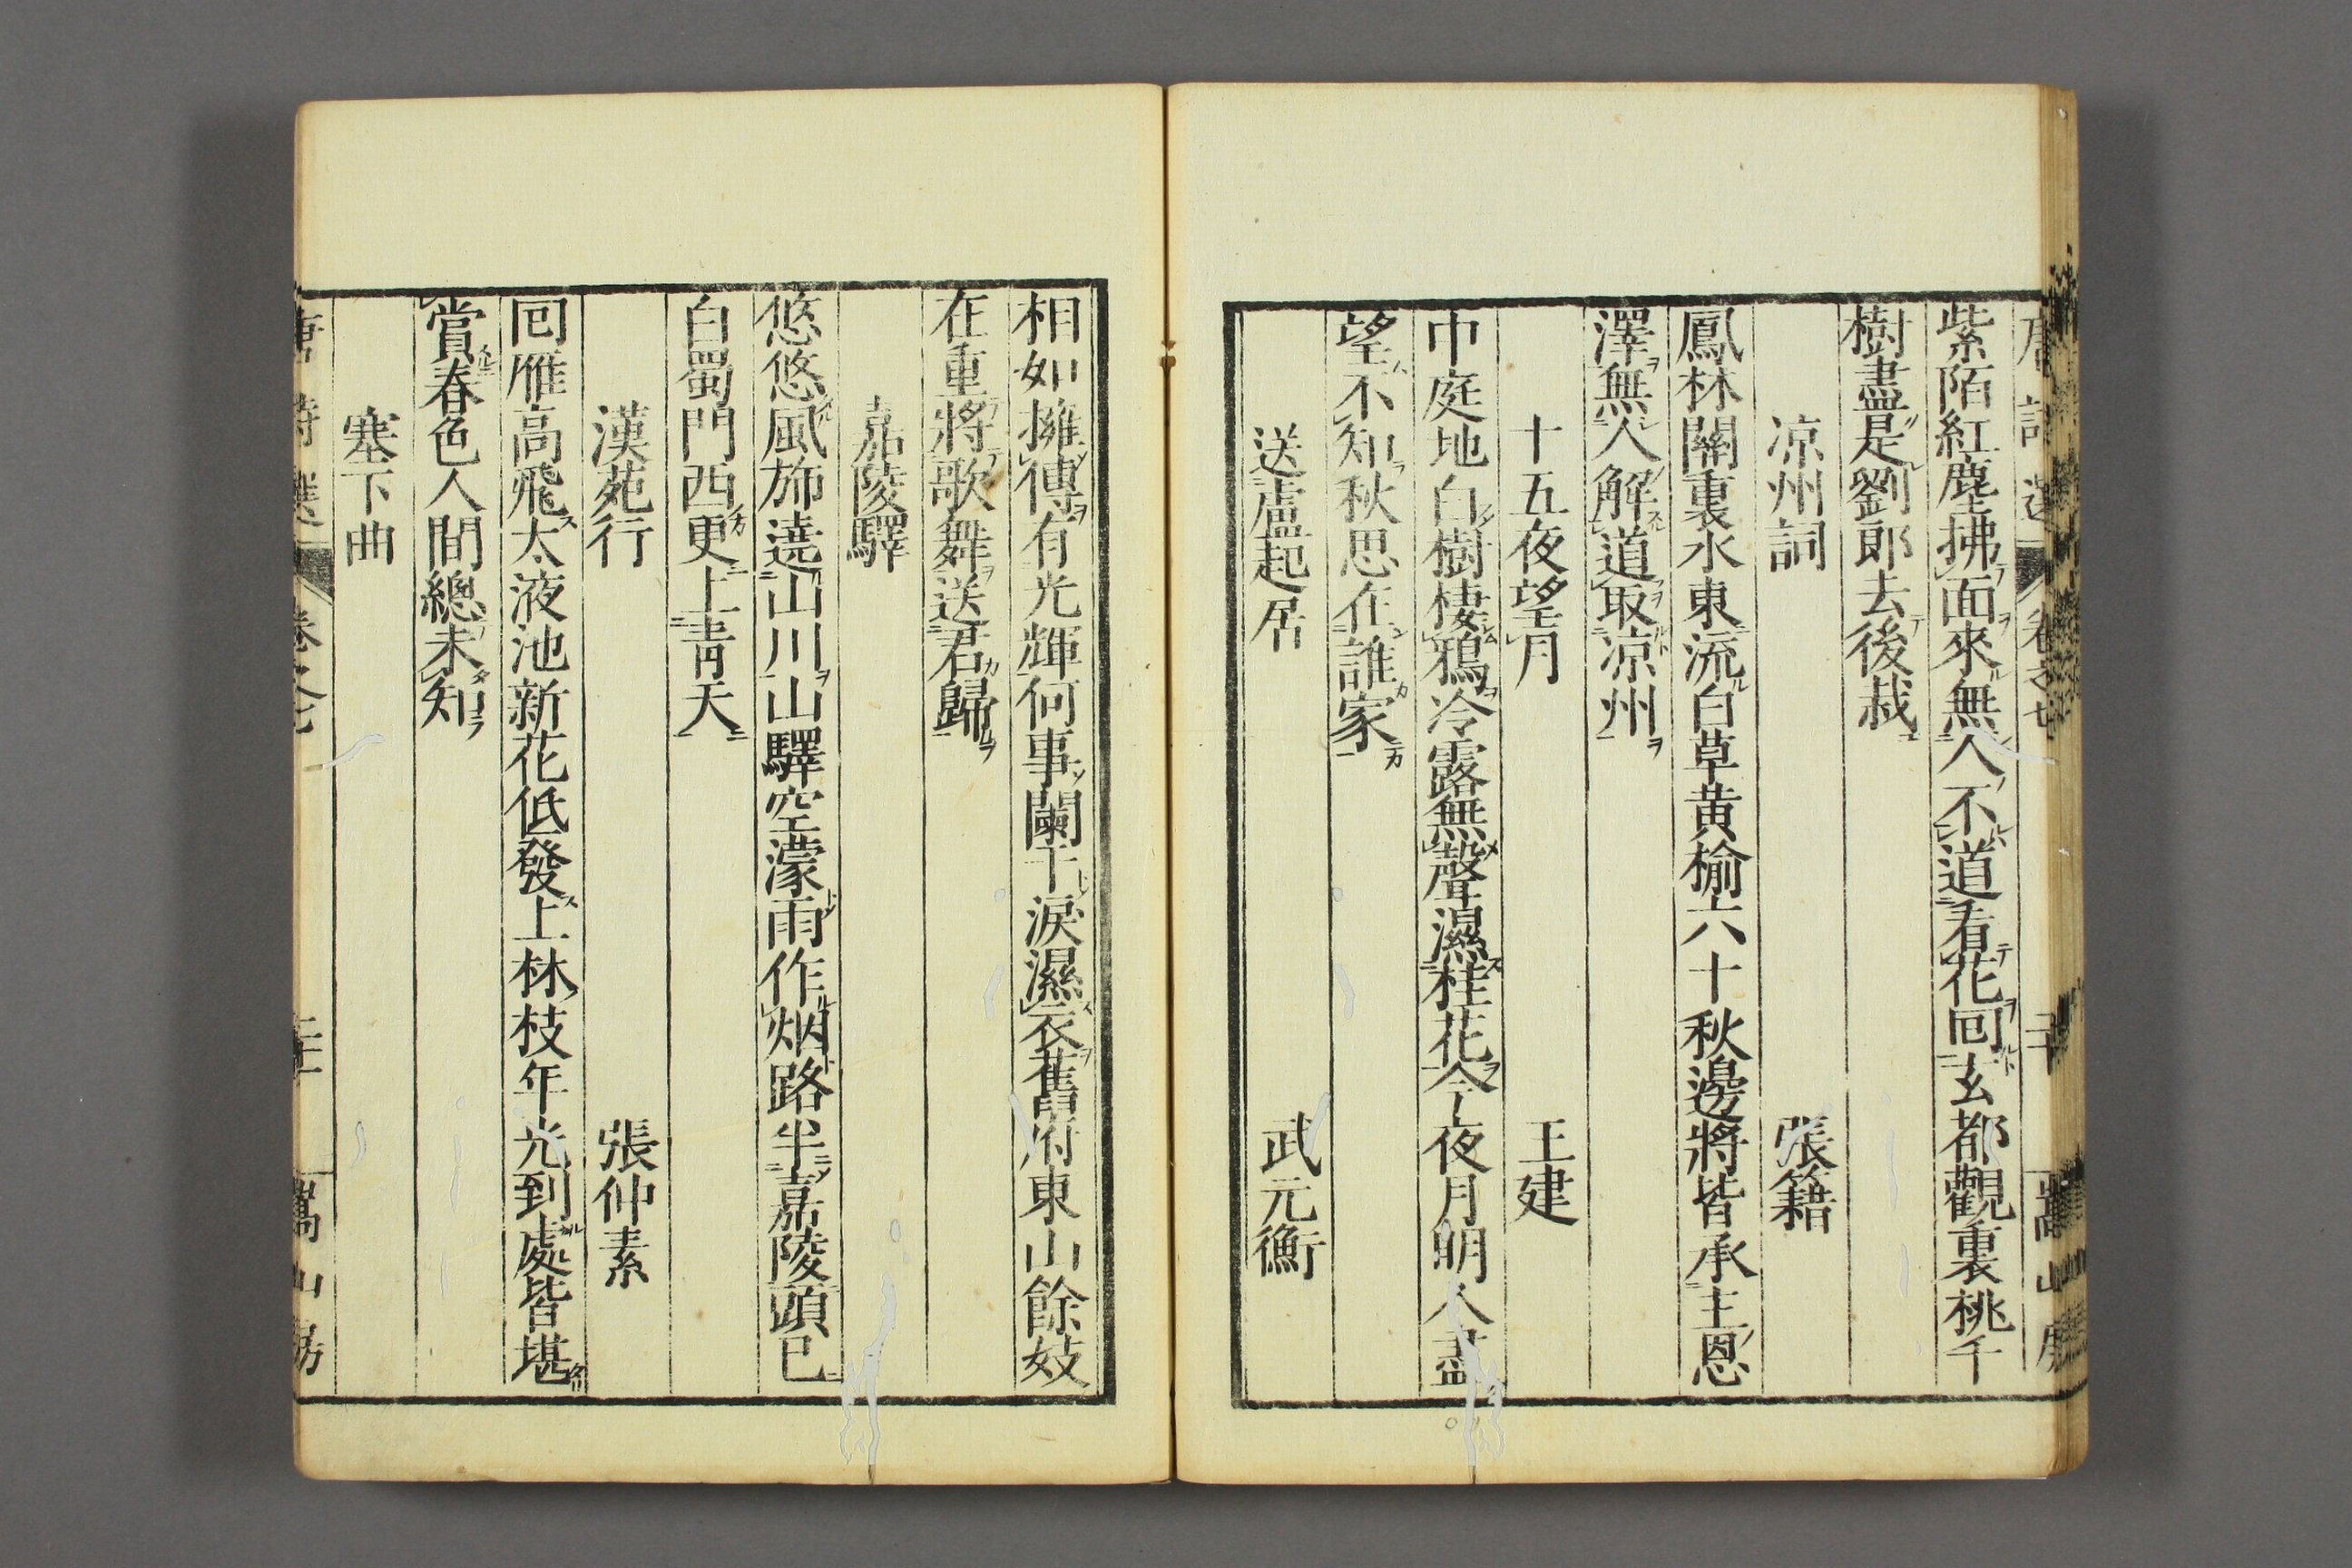 紫陌紅塵拂面來無人不道看花回玄都觀裏桃千
樹盡是劉郎去後栽
凉州詞 張籍
鳳林關裏水東流白草黄榆六十秋邊將皆承主恩
澤無人解道取凉州
十五夜望月 王建
中庭地白樹棲鴉冷露無聲濕桂花今夜月明人盡
望不知秋思在誰家
送盧起居 武元衡
相如擁傳有光輝何事闌干淚濕衣舊府東山餘妓
在重將歌舞送君歸
嘉陵驛
悠悠風斾遶山川山驛空濛雨作烟路半嘉陵頭已
白蜀門西更上青天
漢苑行 張仲素
回雁高飛太液池新花低發上林枝年光到處皆堪
賞春色人間總未知
塞下曲
唐詩選 卷之七 嵩山房